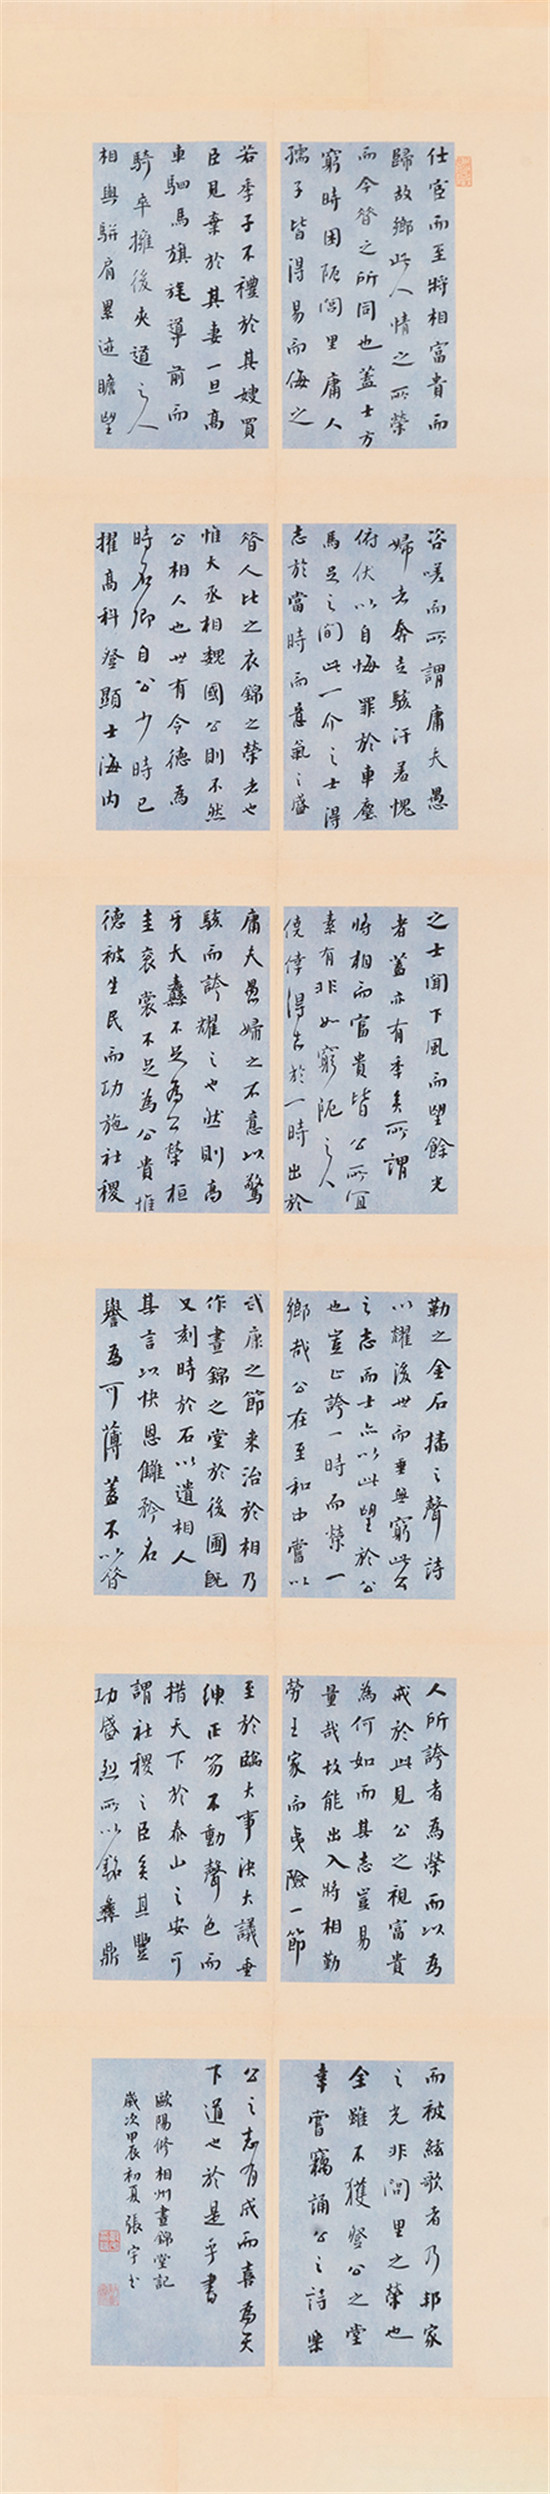 仕宦而至將相富貴而
歸故鄉此人情之所榮
而今昝之所同也蓋士方
窮時困阨閭里庸人
孺子皆得易而侮之
若季子不禮於其嫂買
臣見棄於其妻一旦高
車駟馬旗旄導前而
騎卒擁後夾道之人
相與駢肩累迹瞻望
咨嗟而所謂庸夫愚
婦者奔走駭汗羞愧
俯伏以自悔罪於車塵
馬足之間此一介之士得
志於當時而意氣之盛
昝人比之衣錦之榮者也
惟大丞相魏國公則不然
公相人也世有令德為
時名卿自公少時已
擢高科登顯士海內
之士聞下風而望餘光
者蓋亦有年矣所謂
將相而富貴皆公所宜
素有非如窮阨之人
僥倖得志於一時出於
庸夫愚婦之不意以驚
駭而誇耀之也然則高
牙大纛不足為公榮桓
圭袞裳不足為公貴惟
德被生民而功施社稷
勒之金石播之聲詩
以耀後世而垂無窮此公
之志而士亦以此望於公
也豈止誇一時而榮一
鄉哉公在至和中嘗以
武康之節來治於相乃
作晝錦之堂於後圃既
又刻時於石以遺相人
其言以快恩讎矜名
譽為可薄蓋不以昝
人所誇者為榮而以為
戒於此見公之視富貴
為何如而其志豈易
量哉故能出入將相勤
勞王家而夷險一節
至於臨大事決大議垂
紳正笏不動聲色而
措天下於泰山之安可
謂社稷之臣矣其豐
功盛烈所以銘彝鼎
而被絃歌者乃邦家
之光非閭里之榮也
余雖不獲登公之堂
幸嘗竊誦公之詩樂
公之志有成而喜為天
下道也於是乎書
歐陽修相州晝錦堂記
歲次甲辰初夏張宇書